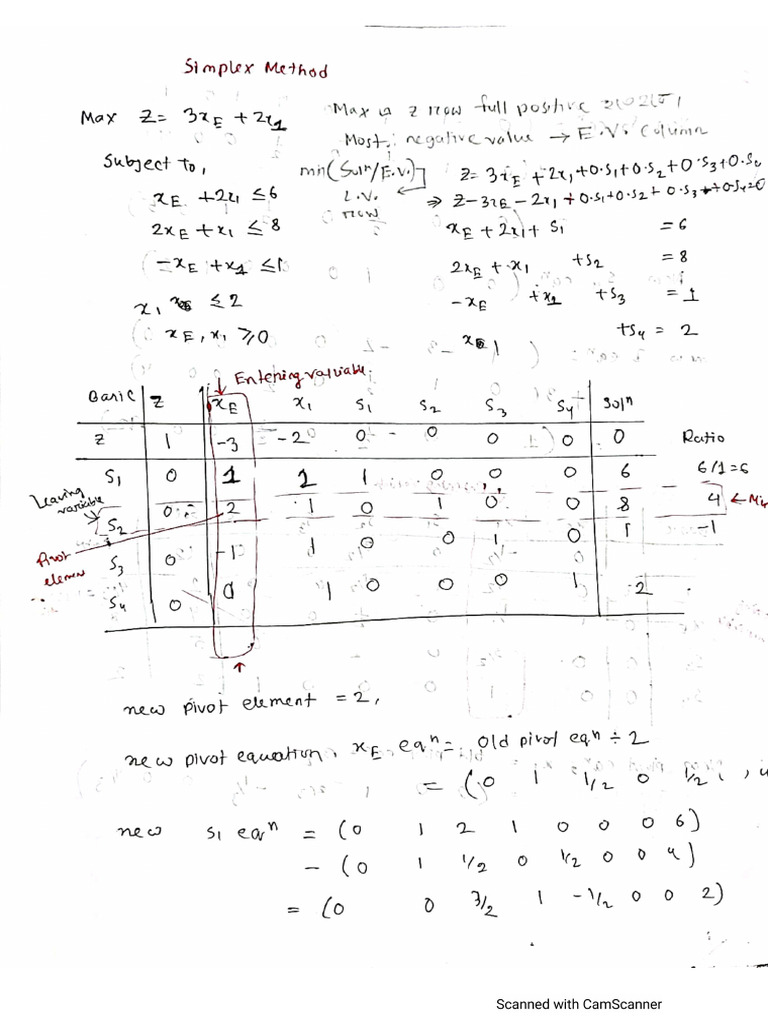 Simplex Method
Max Z = 3x_E + 2x_1
Max Z row full positive
Most negative value → E.V. column
Subject to,
min(Soln/E.V.)
L.V. row
Z = 3x_E + 2x_1 + 0·S_1 + 0·S_2 + 0·S_3 + 0·S_4
⇒ Z - 3x_E - 2x_1 + 0·S_1 + 0·S_2 + 0·S_3 + 0·S_4 = 0
x_E + 2x_1 ≤ 6
x_E + 2x_1 + S_1 = 6
2x_E + x_1 ≤ 8
2x_E + x_1 + S_2 = 8
-x_E + x_1 ≤ 1
-x_E + x_1 + S_3 = 1
x_1 ≤ 2
+S_4 = 2
x_E, x_1 ≥ 0
↓ Entering variable
Basic Z x_E x_1 S_1 S_2 S_3 S_4 Soln
Z 1 -3 -2 0 0 0 0 0 Ratio
S_1 0 1 2 1 0 0 0 6 6/1=6
Leaving variable
S_2 0 2 1 0 1 0 0 8 4 ← Min
Pivot element
S_3 0 -1 1 0 0 1 0 1 -1
S_4 0 0 1 0 0 0 1 2
↑
new pivot element = 2,
new pivot equation, x_E eqn = old pivot eqn ÷ 2
= (0 1 1/2 0 1/2
new S_1 eqn = (0 1 2 1 0 0 0 6)
- (0 1 1/2 0 1/2 0 0 4)
= (0 0 3/2 1 -1/2 0 0 2)
Scanned with CamScanner